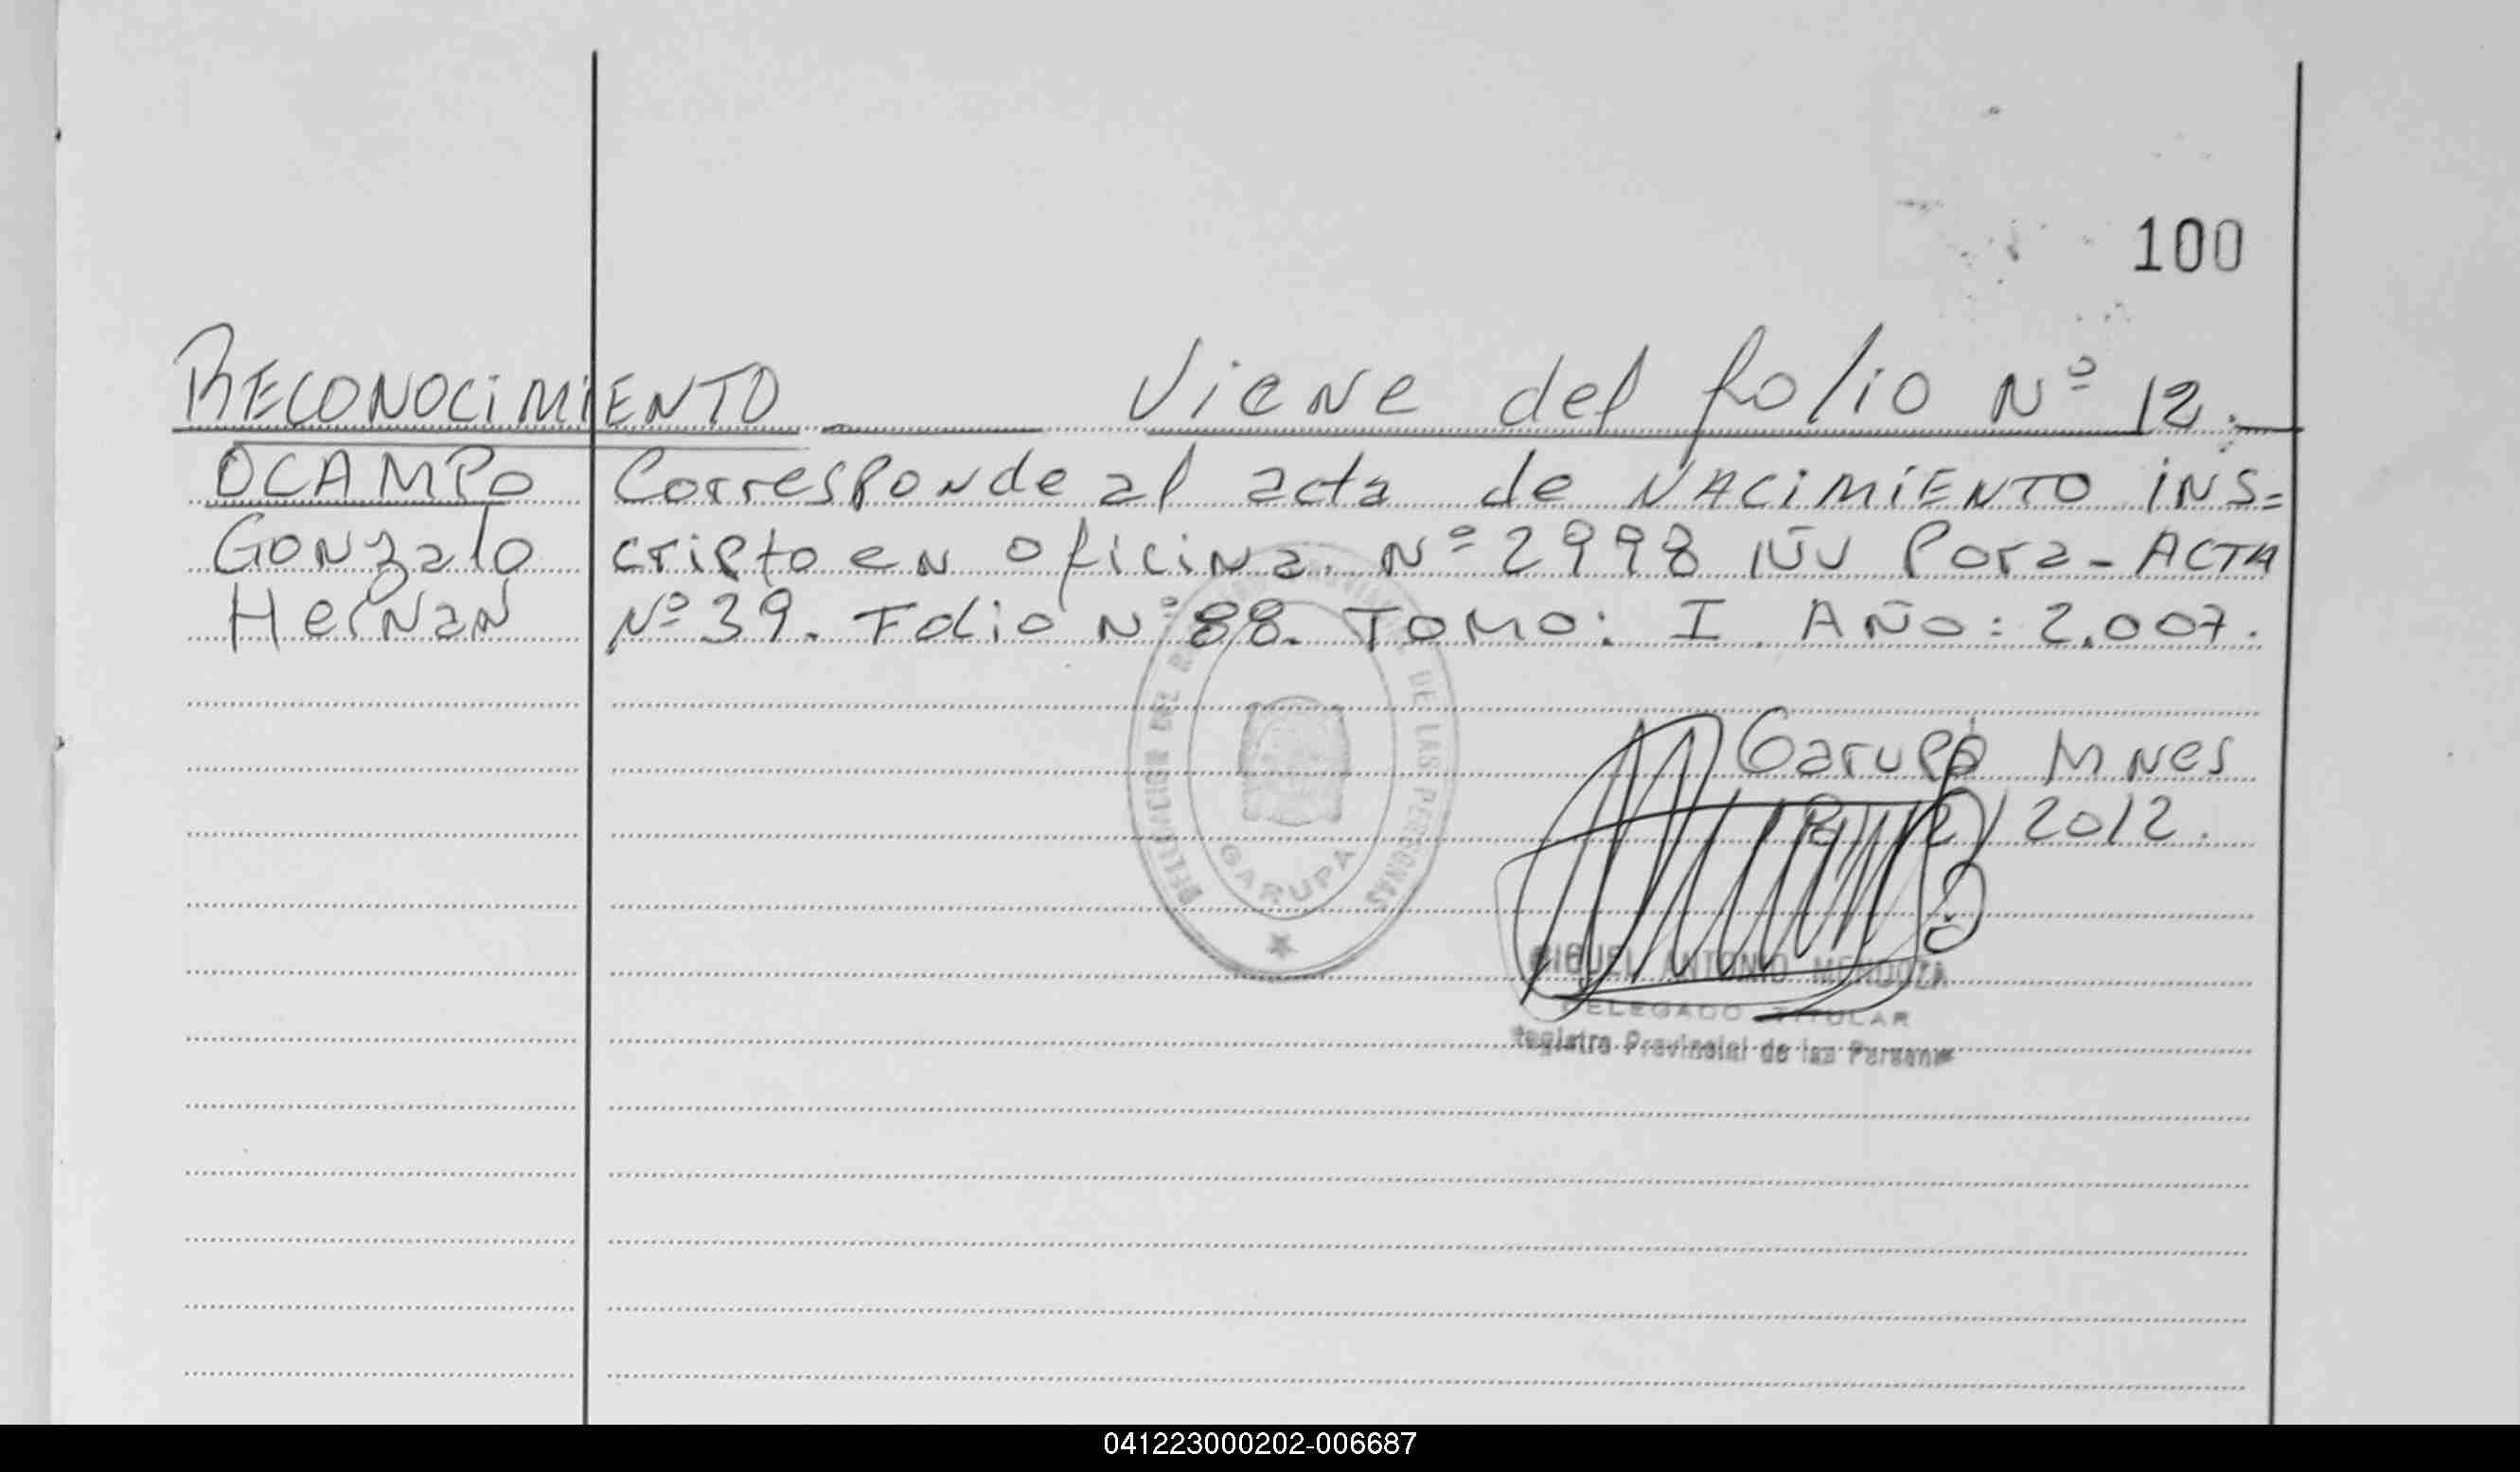 100
RECONOCIMIENTO Viene del folio Nº 12.
OCAMPO Corresponde al acta de NACIMIENTO INS=
Gonzalo cripto en oficina. Nº 2998 Pora - ACTA
Hernan Nº 39. Folio Nº 88. TOMO: I. AÑO: 2.007.
Garupá MNes
2012.
DELEGACION DEL DE LAS PERSONAS
GARUPA
MIGUEL ANTONIO MENDOZA
DELEGADO TITULAR
Registro Provincial de las Personas
041223000202-006687